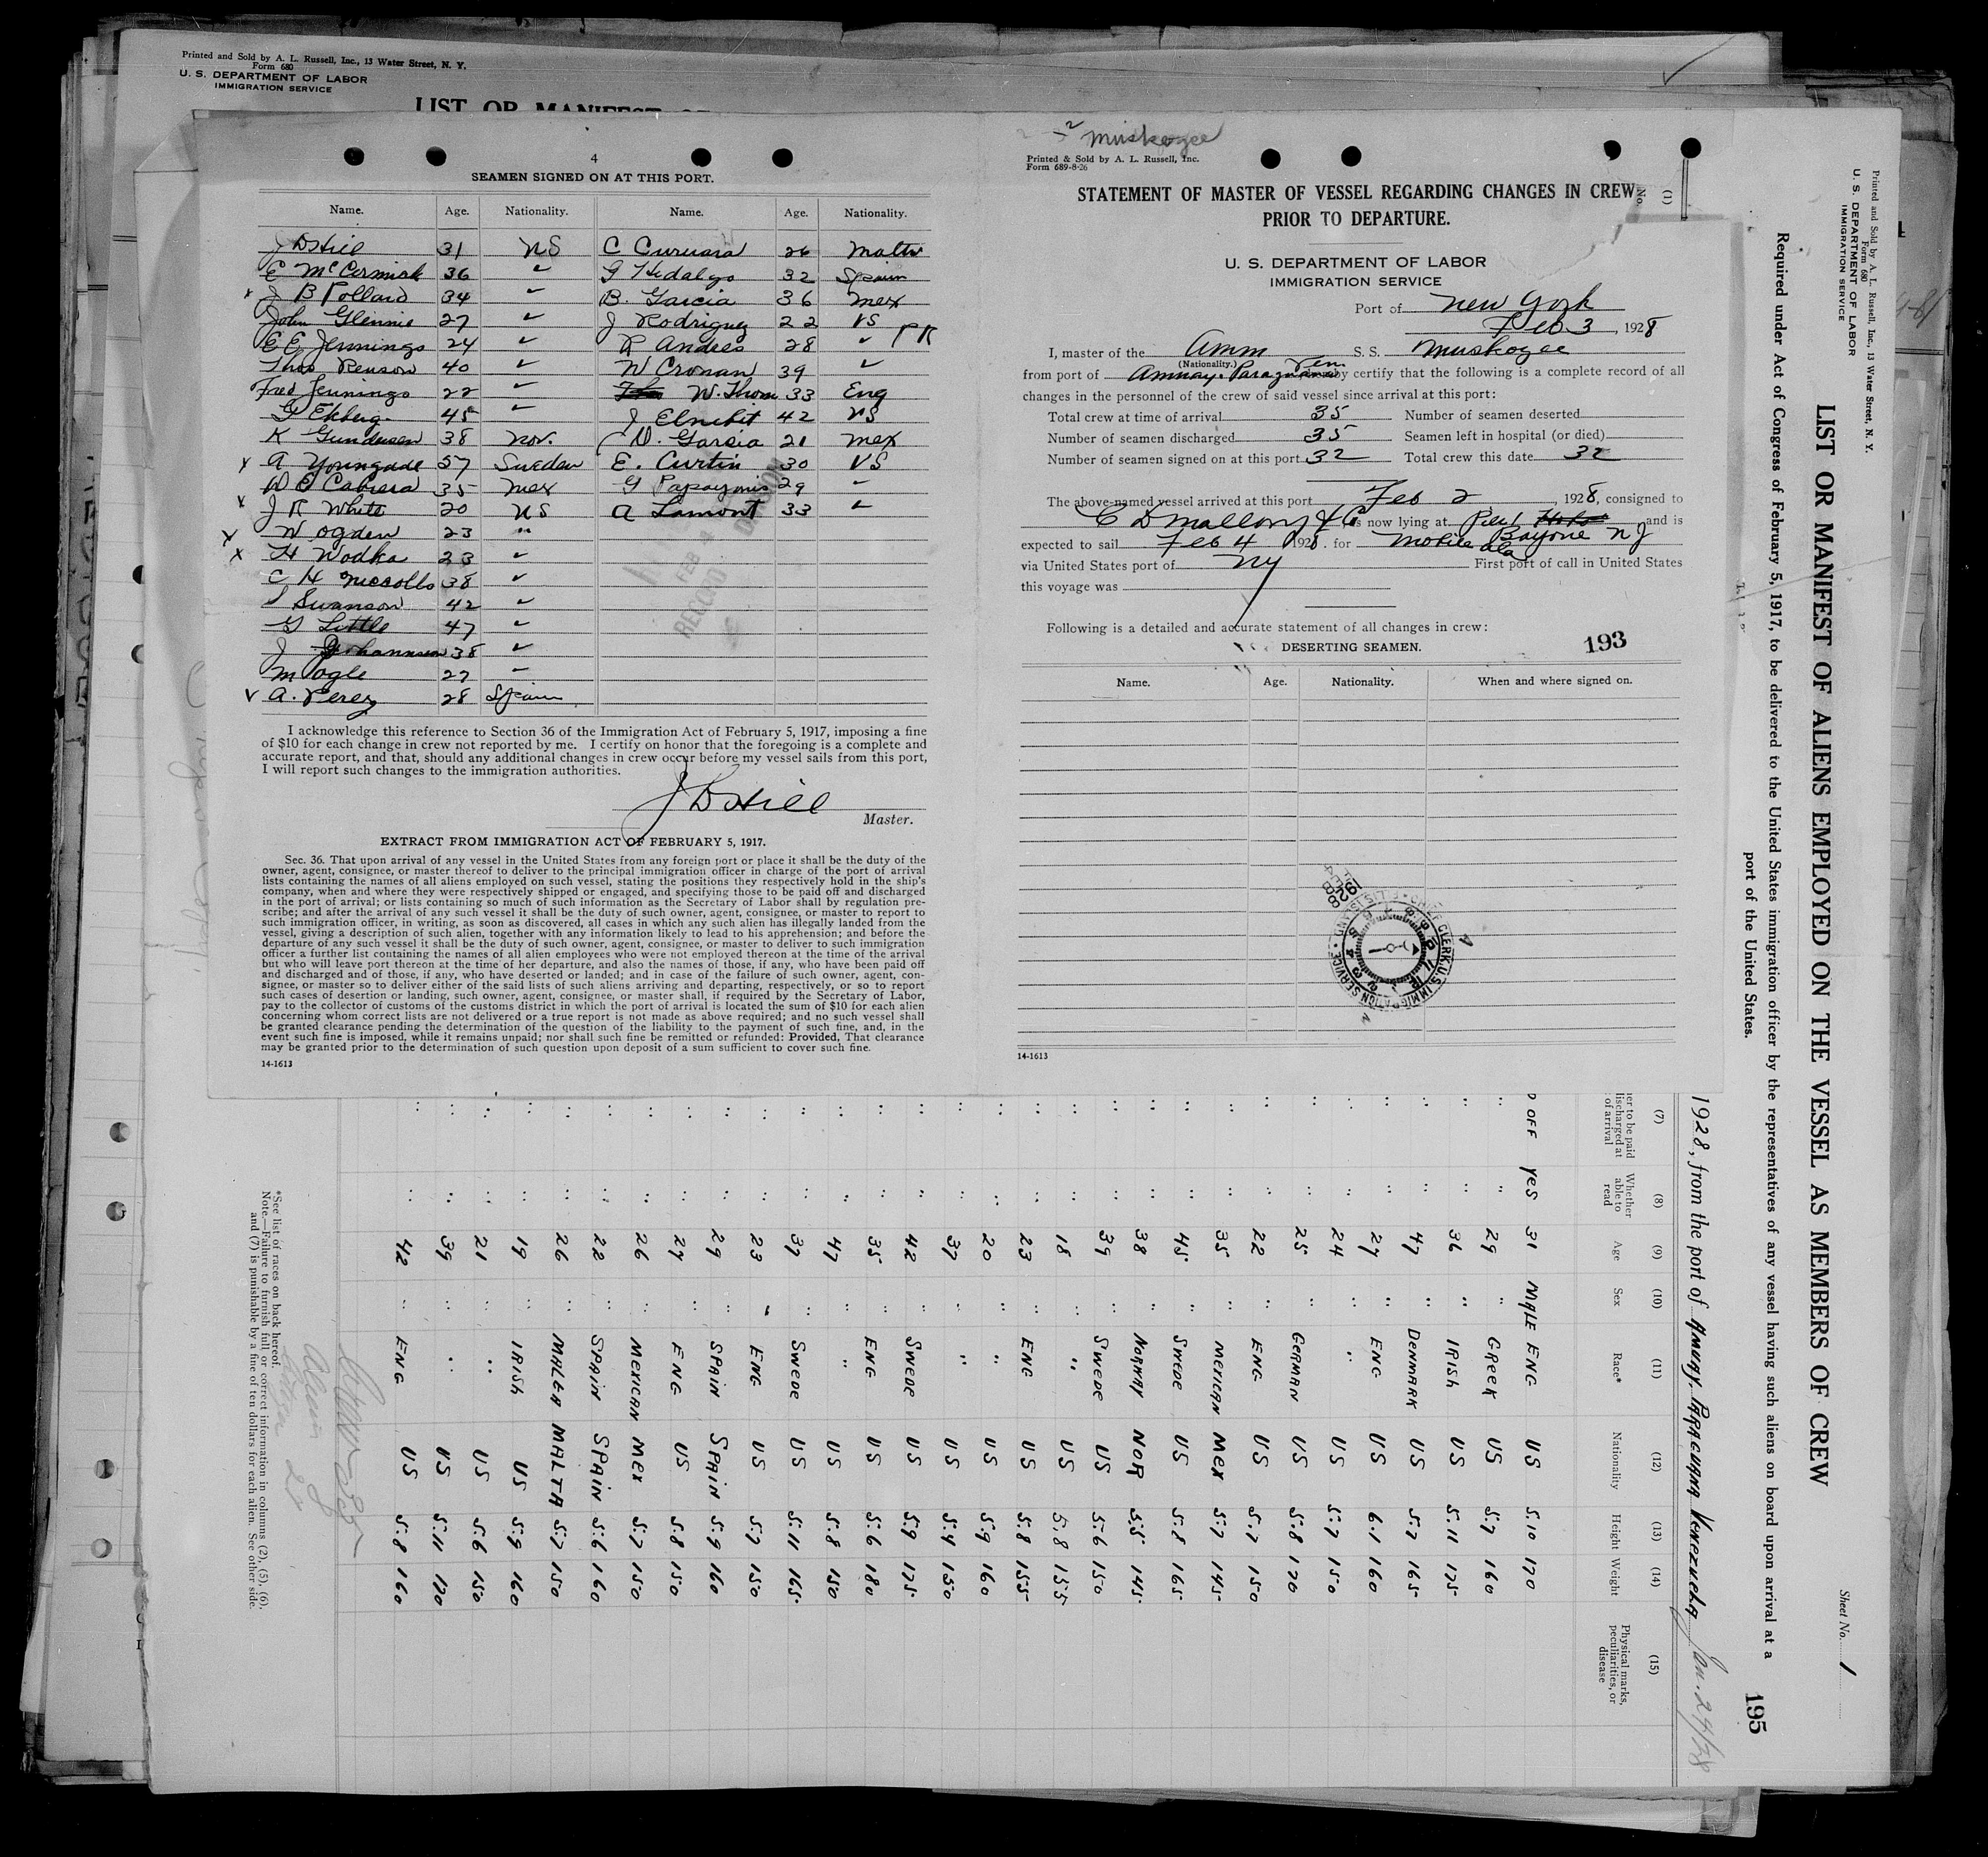 Printed and Sold by A. L. Russell, Inc., 13 Water Street, N. Y.
Form 680
U. S. DEPARTMENT OF LABOR
IMMIGRATION SERVICE
LIST OR MANIFEST
4
SEAMEN SIGNED ON AT THIS PORT.
Name. Age. Nationality. Name. Age. Nationality.
J D Hill 31 US C Curusia 26 Malta
E McCormick 36 " G Hidalgo 32 Spain
x J B Pollard 34 " B. Garcia 36 Mex
John Glennie 27 " J Rodriguez 22 US
E E Jennings 24 " R Andres 28 " P R
Thos Renson 40 " W Cronan 39 "
Fred Jennings 22 " W. Thom 33 Eng
G Ekberg 45 " J 42 US
K Gundersen 38 Nor. D. Garsia 21 Mex
x A Youngade 57 Sweden E. Curtin 30 US
W E Cabrera 35 Mex G Papayonis 29 "
x J R White 20 US A Lamont 33 "
x W Ogden 23 "
x H Wodka 23 "
C H 38 "
Swanson 42 "
G Little 47 "
J Johannsen 38 "
M Ogle 27 "
v A. Perez 28 Spain
I acknowledge this reference to Section 36 of the Immigration Act of February 5, 1917, imposing a fine
of $10 for each change in crew not reported by me. I certify on honor that the foregoing is a complete and
accurate report, and that, should any additional changes in crew occur before my vessel sails from this port,
I will report such changes to the immigration authorities.
J D Hill
Master.
EXTRACT FROM IMMIGRATION ACT OF FEBRUARY 5, 1917.
Sec. 36. That upon arrival of any vessel in the United States from any foreign port or place it shall be the duty of the
owner, agent, consignee, or master thereof to deliver to the principal immigration officer in charge of the port of arrival
lists containing the names of all aliens employed on such vessel, stating the positions they respectively hold in the ship's
company, when and where they were respectively shipped or engaged, and specifying those to be paid off and discharged
in the port of arrival; or lists containing so much of such information as the Secretary of Labor shall by regulation pre-
scribe; and after the arrival of any such vessel it shall be the duty of such owner, agent, consignee, or master to report to
such immigration officer, in writing, as soon as discovered, all cases in which any such alien has illegally landed from the
vessel, giving a description of such alien, together with any information likely to lead to his apprehension; and before the
departure of any such vessel it shall be the duty of such owner, agent, consignee, or master to deliver to such immigration
officer a further list containing the names of all alien employees who were not employed thereon at the time of the arrival
but who will leave port thereon at the time of her departure, and also the names of those, if any, who have been paid off
and discharged and of those, if any, who have deserted or landed; and in case of the failure of such owner, agent, con-
signee, or master so to deliver either of the said lists of such aliens arriving and departing, respectively, or so to report
such cases of desertion or landing, such owner, agent, consignee, or master shall, if required by the Secretary of Labor,
pay to the collector of customs of the customs district in which the port of arrival is located the sum of $10 for each alien
concerning whom correct lists are not delivered or a true report is not made as above required; and no such vessel shall
be granted clearance pending the determination of the question of the liability to the payment of such fine, and, in the
event such fine is imposed, while it remains unpaid; nor shall such fine be remitted or refunded: Provided, That clearance
may be granted prior to the determination of such question upon deposit of a sum sufficient to cover such fine.
14-1613
RECORD DIVISION
FEB 4
Muskogee
Printed & Sold by A. L. Russell, Inc.
Form 689-8-26
STATEMENT OF MASTER OF VESSEL REGARDING CHANGES IN CREW
PRIOR TO DEPARTURE.
U. S. DEPARTMENT OF LABOR
IMMIGRATION SERVICE
Port of New York
Feb 3, 1928
I, master of the Amm S. S. Muskogee
(Nationality.)
from port of Amuay. Paraguana Ven by certify that the following is a complete record of all
changes in the personnel of the crew of said vessel since arrival at this port:
Total crew at time of arrival 35 Number of seamen deserted
Number of seamen discharged 35 Seamen left in hospital (or died)
Number of seamen signed on at this port 32 Total crew this date 32
The above-named vessel arrived at this port Feb 2, 1928, consigned to
C D Mallory & Co is now lying at Pier 1 Bayone N J and is
expected to sail Feb 4 1928. for Mobile Ala
via United States port of NY First port of call in United States
this voyage was
Following is a detailed and accurate statement of all changes in crew:
DESERTING SEAMEN. 193
Name. Age. Nationality. When and where signed on.
1928
CHIEF CLERK, U.S. IMMIGRATION SERVICE
14-1613
Printed and Sold by A. L. Russell, Inc., 13 Water Street, N. Y.
Form 680
U. S. DEPARTMENT OF LABOR
IMMIGRATION SERVICE
Sheet No. 1
LIST OR MANIFEST OF ALIENS EMPLOYED ON THE VESSEL AS MEMBERS OF CREW
Required under Act of Congress of February 5, 1917, to be delivered to the United States immigration officer by the representatives of any vessel having such aliens on board upon arrival at a
port of the United States.
195
1928, from the port of Amuay. Paraguana Venezuela Jan. 24/28
(1) (7) (8) (9) (10) (11) (12) (13) (14) (15)
No. er to be paid discharged at of arrival Whether able to read Age Sex Race* Nationality Height Weight Physical marks, peculiarities, or disease
D OFF YES 31 MALE ENG US 5.10 170
" " 29 " GREEK US 5.7 160
" " 36 " IRISH US 5.11 175
" " 47 " DENMARK US 5.7 165
" " 27 " ENG US 6.1 160
" " 24 " " US 5.7 150
" " 25 " GERMAN US 5.8 170
" " 22 " ENG US 5.7 150
" " 35 " MEXICAN MEX 5.7 145
" " 45 " SWEDE US 5.8 165
" " 38 " NORWAY NOR 5.5 145
" " 39 " SWEDE US 5.6 150
" " 18 " " US 5.8 155
" " 23 " ENG US 5.8 155
" " 20 " " US 5.9 160
" " 37 " " US 5.4 150
" " 42 " SWEDE US 5.9 175
" " 35 " ENG US 5.6 180
" " 47 " " US 5.8 150
" " 37 " SWEDE US 5.11 165
" " 23 " ENG US 5.7 150
" " 29 " SPAIN SPAIN 5.9 160
" " 27 " ENG US 5.8 150
" " 26 " MEXICAN MEX 5.7 150
" " 22 " SPAIN SPAIN 5.6 160
" " 26 " MALEA MALTA 5.7 150
" " 19 " IRISH US 5.9 160
" " 21 " " US 5.6 150
" " 39 " " US 5.11 170
" " 42 " ENG US 5.8 160
*See list of races on back hereof.
Note.—Failure to furnish full or correct information in columns (2), (5), (6),
and (7) is punishable by a fine of ten dollars for each alien. See other side.